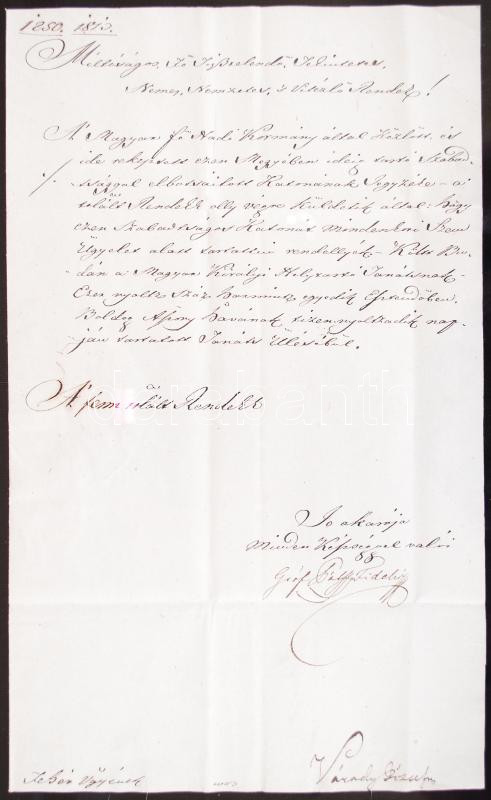 1250. 1813.
Méltóságos, Fő Tisztelendő, Tekintetes,
Nemes, Nemzetes, 's Vitézlő Rendek!
A' Magyar Fő Hadi Kormány által közlött, és
ide rekesztett ezen Megyében ideig tartó Szabad-
-sággal elbotsáitott Katonának Jegyzéke a'
tisztelt Rendekk olly végre küldetik által: hogy
ezen Szabadságos Katonát mindenkori Szem
Ügyelet alatt tartatni rendellyék. Költt Bu-
dán a' Magyar Királyi Helytartó Tanátsnak
Ezer nyoltz Száz harmintz egyedik Esztendőben,
Boldog Aszony Havának tizen nyoltzadik nap-
-ján tartatott Tanáts Ülésébűl.
A' fenn tisztelt Rendekk
Jó akarója
Minden Készséggel való
Gróf Pálffy Fidél
Fehér Vgyének
Várady